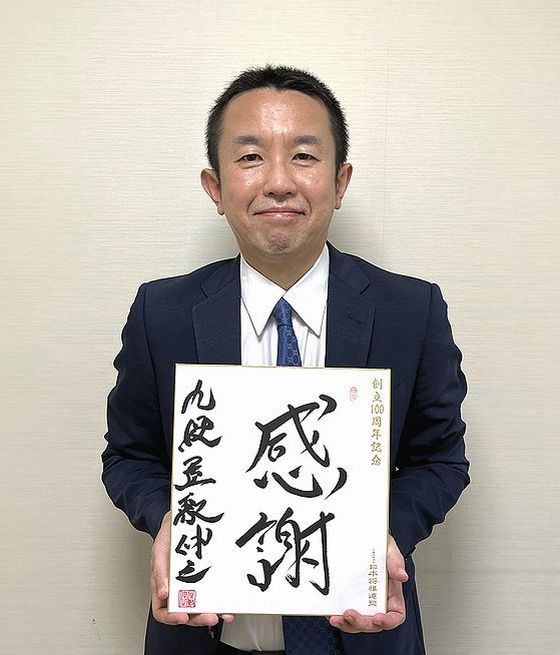 創立100周年記念
日本将棋連盟
感謝
九段屋敷伸之